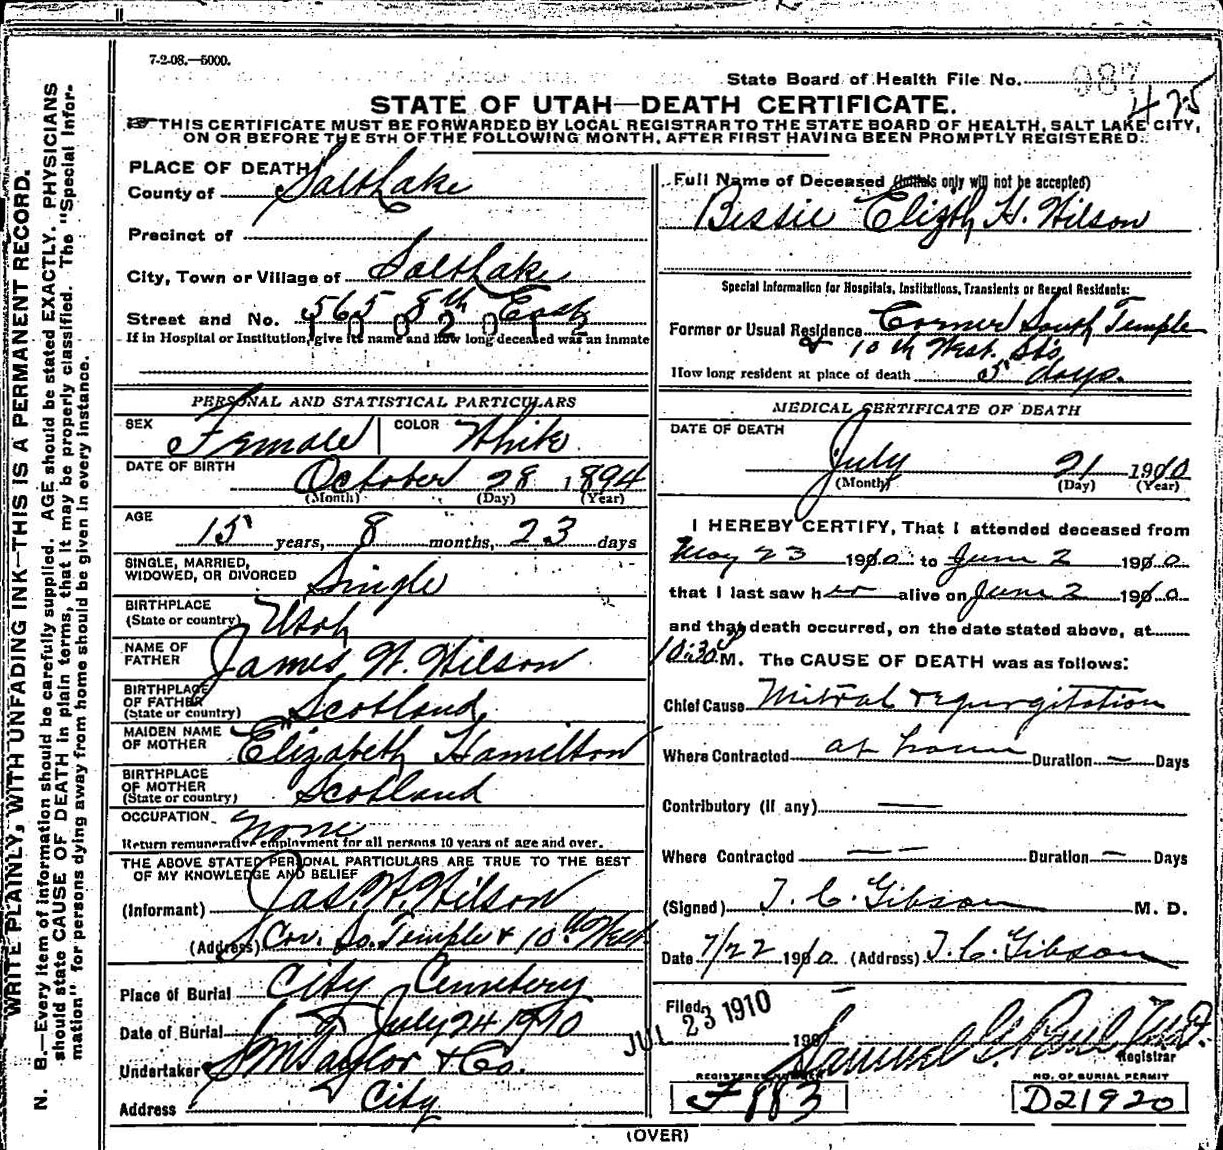 7-2-08.—5000.
State Board of Health File No. 987
425
STATE OF UTAH—DEATH CERTIFICATE.
THIS CERTIFICATE MUST BE FORWARDED BY LOCAL REGISTRAR TO THE STATE BOARD OF HEALTH, SALT LAKE CITY,
ON OR BEFORE THE 5TH OF THE FOLLOWING MONTH, AFTER FIRST HAVING BEEN PROMPTLY REGISTERED.
WRITE PLAINLY, WITH UNFADING INK—THIS IS A PERMANENT RECORD.
N. B.—Every item of information should be carefully supplied. AGE should be stated EXACTLY. PHYSICIANS
should state CAUSE OF DEATH in plain terms, that it may be properly classified. The "Special Infor-
mation" for persons dying away from home should be given in every instance.
PLACE OF DEATH
County of Salt Lake
Precinct of
City, Town or Village of Salt Lake
Street and No. 565 8th East
1002012
If in Hospital or Institution, give its name and how long deceased was an inmate
PERSONAL AND STATISTICAL PARTICULARS
SEX Female COLOR White
DATE OF BIRTH October 28 1894
(Month) (Day) (Year)
AGE 15 years, 8 months, 23 days
SINGLE, MARRIED,
WIDOWED, OR DIVORCED Single
BIRTHPLACE
(State or country) Utah
NAME OF
FATHER James W. Wilson
BIRTHPLACE
OF FATHER
(State or country) Scotland
MAIDEN NAME
OF MOTHER Elizabeth Hamilton
BIRTHPLACE
OF MOTHER
(State or country) Scotland
OCCUPATION None
Return remunerative employment for all persons 10 years of age and over.
THE ABOVE STATED PERSONAL PARTICULARS ARE TRUE TO THE BEST
OF MY KNOWLEDGE AND BELIEF
(Informant) Jas. W. Wilson
(Address) Cor. So. Temple & 10th West
Place of Burial City Cemetery
Date of Burial July 24 1910
Undertaker S M Taylor & Co.
Address City
Full Name of Deceased (Initials only will not be accepted)
Bessie Elizth H. Wilson
Special Information for Hospitals, Institutions, Transients or Recent Residents:
Former or Usual Residence Corner South Temple
& 10th West Sts
How long resident at place of death 5 days.
MEDICAL CERTIFICATE OF DEATH
DATE OF DEATH
July 21 1910
(Month) (Day) (Year)
I HEREBY CERTIFY, That I attended deceased from
May 23 1910 to June 2 1910
that I last saw her alive on June 2 1910
and that death occurred, on the date stated above, at
10:30 P M. The CAUSE OF DEATH was as follows:
Chief Cause Mitral regurgitation
Where Contracted at home Duration — Days
Contributory (if any) —
Where Contracted — — Duration — Days
(Signed) T. C. Gibson M. D.
Date 7/22 1910. (Address) T. C. Gibson
Filed JUL 23 1910 190
Samuel G. Paul M.D.
Registrar
REGISTERED NUMBER
F 883
NO. OF BURIAL PERMIT
D21920
(OVER)